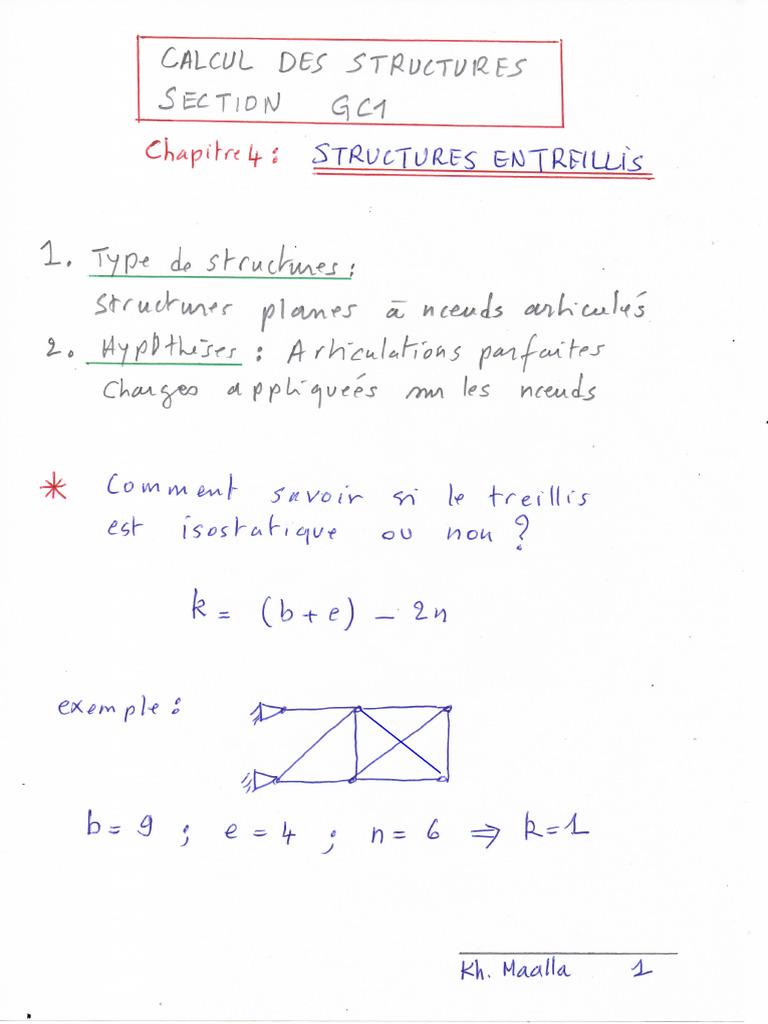 CALCUL DES STRUCTURES
SECTION GC1
Chapitre 4 : STRUCTURES EN TREILLIS
1. Type de structures :
Structures planes à nœuds articulés
2. Hypothèses : Articulations parfaites
Charges appliqueés sur les nœuds
* Comment savoir si le treillis
est isostatique ou non ?
k = (b + e) - 2n
exemple :
b = 9 ; e = 4 ; n = 6 ⇒ k = 1
Kh. Maalla 1